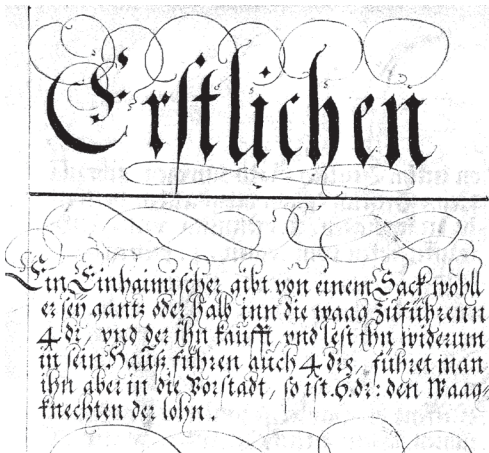 Erstlichen
Ein Einhaimischer gibt von einem Sack wohll
er seÿ gantz oder halb inn die waag zuführenn
4 dr, vnd der ihn kaufft, vnd lest ihn widerum
in sein Hauß führen auch 4 drs, führet man
ihn aber in die Vorstadt, so ist. 6. dr: den Waag-
knechten der lohn.